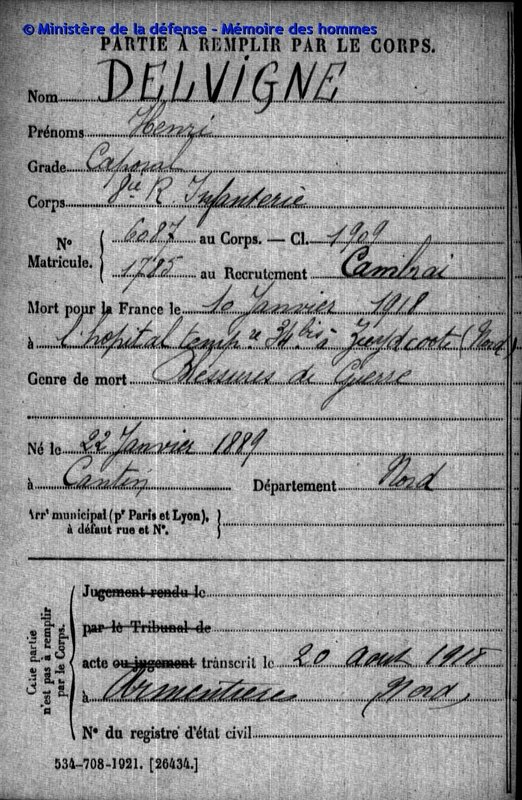 © Ministère de la défense - Mémoire des hommes
PARTIE À REMPLIR PAR LE CORPS.
Nom DELVIGNE
Prénoms Henri
Grade Caporal
Corps 8e R Infanterie
N° Matricule. { 6087 au Corps. — Cl. 1909
1785 au Recrutement Cambrai
Mort pour la France le 10 Janvier 1918
à l'hopital temp. re 34 bis à Zuydcoote (Nord)
Genre de mort Blessures de Guerre
Né le 22 Janvier 1889
à Cantin Département Nord
Arrt municipal (pr Paris et Lyon),
à défaut rue et N°.
Cette partie n'est pas à remplir par le Corps.
Jugement rendu le
par le Tribunal de
acte ou jugement transcrit le 20 aout 1918
à Armentières Nord
N° du registre d'état civil
534-708-1921. [26434.]